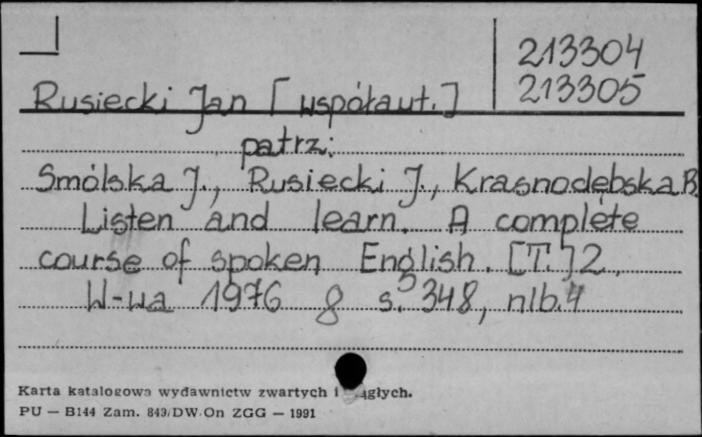 213304
213305
Rusiecki Jan [współaut.]
patrz:
Smólska J., Rusiecki J., Krasnodębska B.
Listen and learn. A complete
course of spoken English. [T.] 2.
W-wa 1976 8 s. 348, nlb. 4
Karta katalogowa wydawnictw zwartych i ciągłych.
PU — B144 Zam. 849/DW-On ZGG — 1991